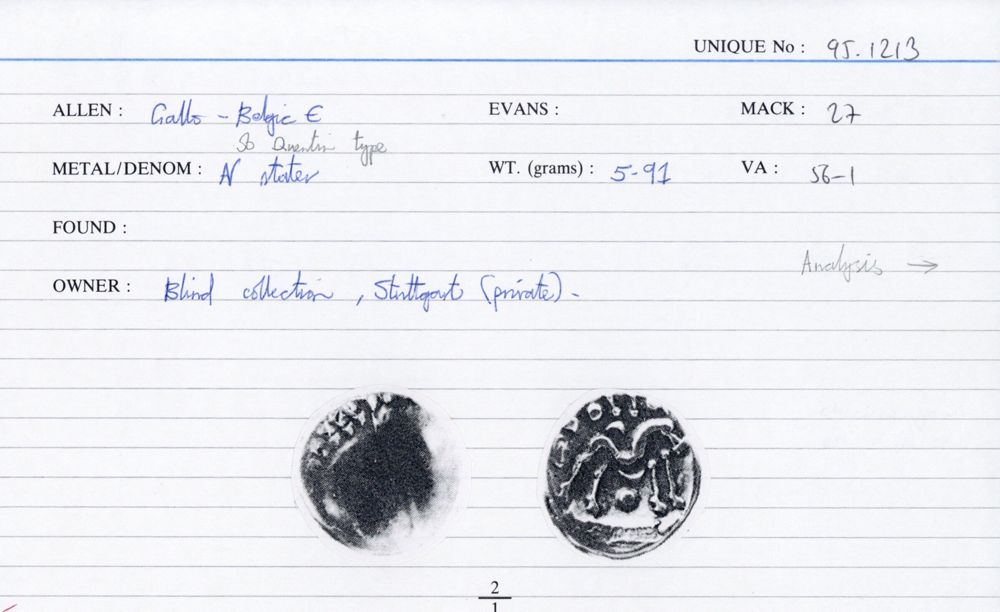 UNIQUE No : 95.1213
ALLEN : Gallo-Belgic E EVANS : MACK : 27
St Quentin type
METAL/DENOM : N stater WT. (grams) : 5-91 VA : 56-1
FOUND :
Analysis →
OWNER : Blind collection, Stuttgart (private).
2
1